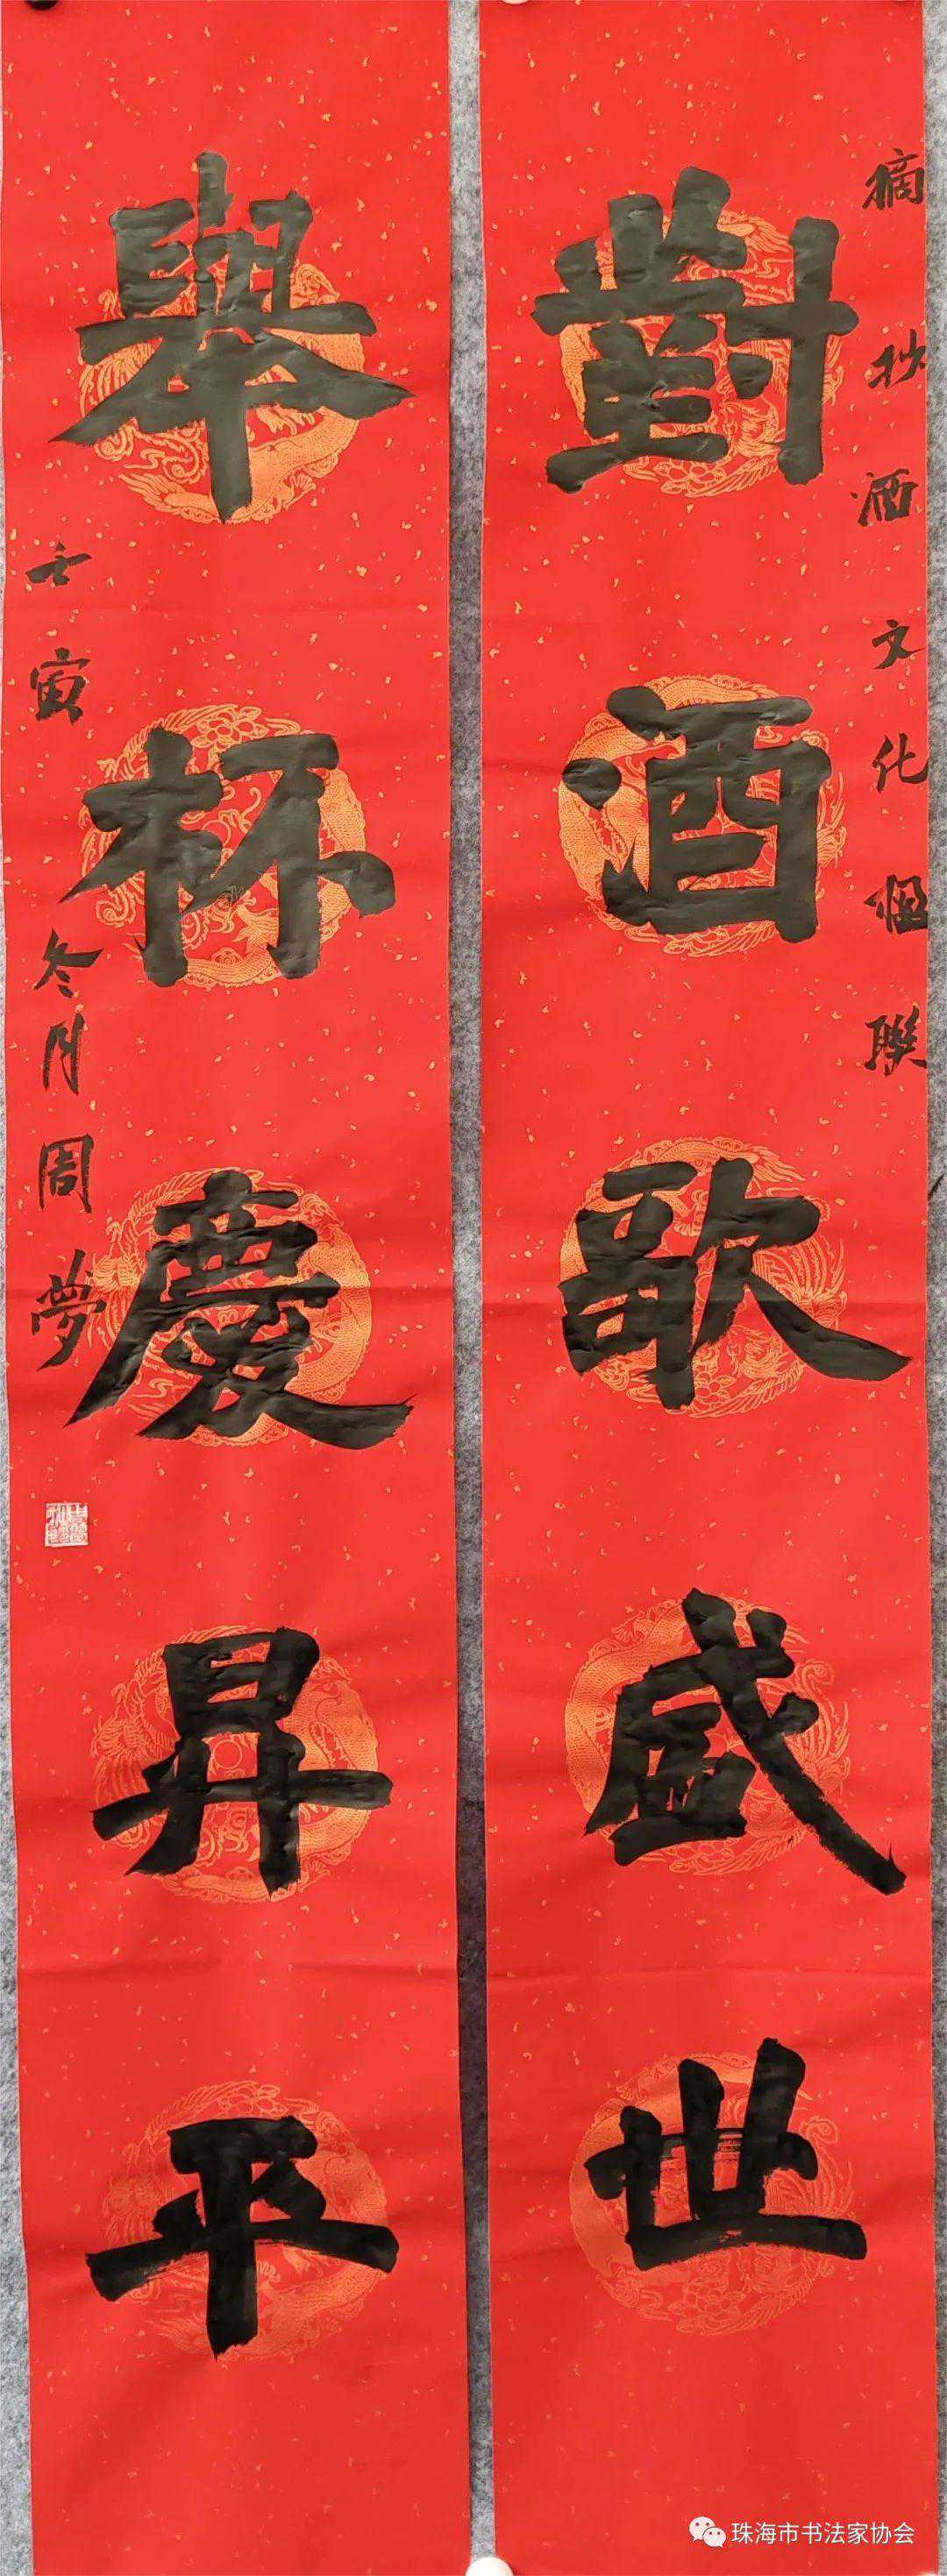 摘抄酒文化楹联
對酒歌盛世
舉杯慶昇平
壬寅冬月周夢
珠海市书法家协会